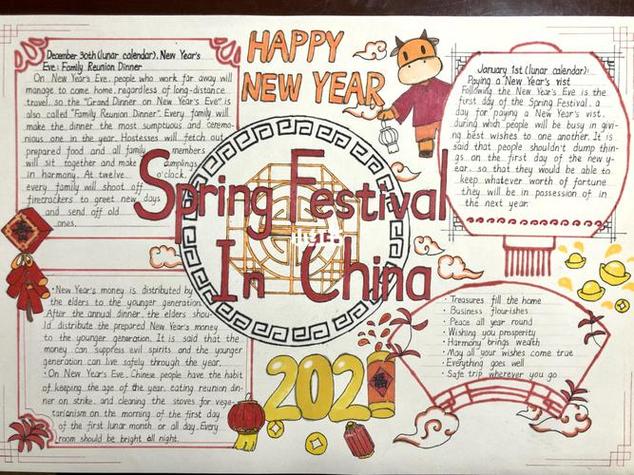 HAPPY
NEW YEAR
Spring Festival
In China
2021
December 30th (lunar calendar), New Year's
Eve: Family Reunion Dinner
On New Year's Eve, people who work far away will
manage to come home, regardless of long-distance
travel, so the "Grand Dinner on New Year's Eve" is
also called "Family Reunion Dinner". Every family will
make the dinner the most sumptuous and ceremo-
nious one in the year. Hostesses will fetch out
prepared food and all family members
will sit together and make dumplings
in harmony. At twelve o'clock,
every family will shoot off
firecrackers to greet new days
and send off old
ones.
January 1st (lunar calendar):
Paying a New Year's vist
Following the New Year's Eve is the
first day of the Spring Festival, a
day for paying a New Year's vist,
during which people will be busy in givi-
ng best wishes to one another. It is
said that people shouldn't dump thin-
gs on the first day of the new y-
ear, so that they would be able to
keep whatever worth of fortune
they will be in possession of in
the next year.
·New Year's money is distributed by
the elders to the younger generation.
After the annual dinner, the elders shou-
ld distribute the prepared New Year's money
to the younger generation. It is said that the
money can suppress evil spirits and the younger
generation can live safely through the year.
·On New Year's Eve, Chinese people have the habit
of keeping the age of the year, eating reunion din-
ner on strike, and cleaning the stoves for vege-
tarianism on the morning of the first day
of the first lunar month or all day. Every
room should be bright all night.
· Treasures fill the home
· Business flourishes
· Peace all year round
· Wishing you prosperity
· Harmony brings wealth
· May all your wishes come true
· Everything goes well
· Safe trip wherever you go
小红书
福